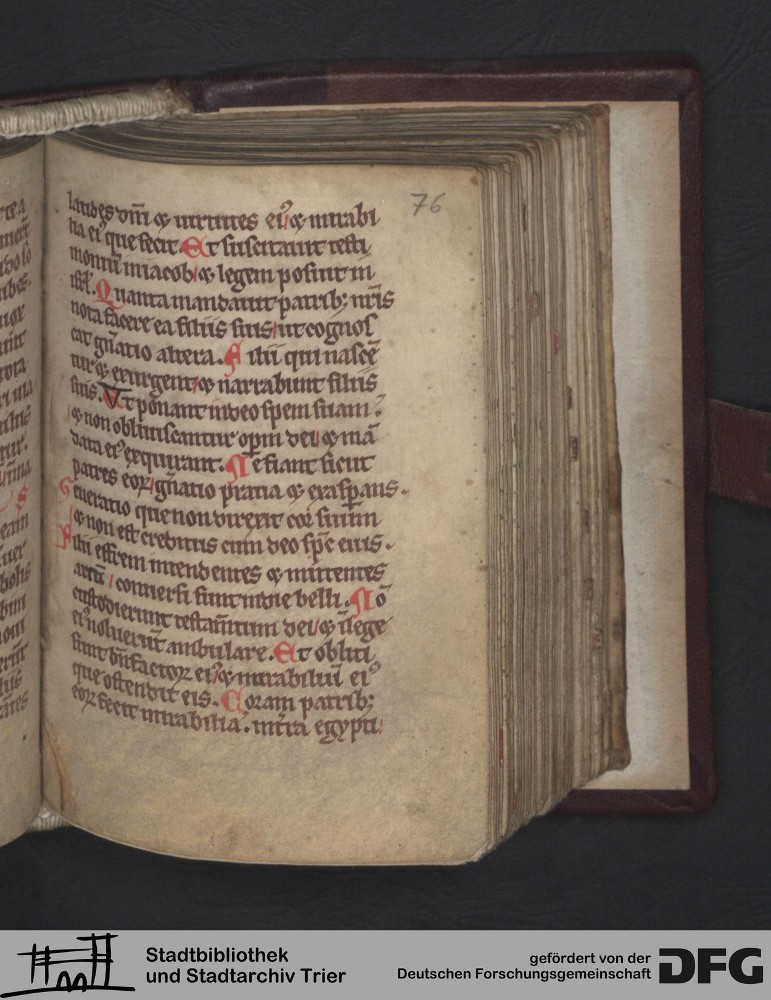 76
laudes dn̄i ⁊ uirtutes ei᷒ ⁊ mirabi
lia ei᷒ que fecit. Et suscitauit testi
moniū in iacob ⁊ legem posuit in
isrl̄. Quanta mandauit patrib; nr̄is
nota facere ea filiis suis ut cognos
cat gn̄atio altera. Filii qui nascē
tur ⁊ exurgent ⁊ narrabunt filiis
suis. Vt ponant in deo spem suam.
⁊ non obliuiscantur opm̄ dei ⁊ mā
data ei᷒ exquirant. Ne fiant sicut
patres eoꝝ gn̄atio praua ⁊ exasꝑans.
Generatio que non direxit cor suum
⁊ non est creditus cum deo spc̄ eius.
Filii effrem intendentes ⁊ mittentes
arcū conuersi sunt in die belli. Nō
custodierunt testam̄tum dei ⁊ ī lege
ei᷒ noluer̄t ambulare. Et obliti
sunt bn̄factoꝝ ei᷒ ⁊ mirabiliū ei᷒
que ostendit eis. Coram patrib;
eoꝝ fecit mirabilia. in tr̄a egypti
Stadtbibliothek
und Stadtarchiv Trier
gefördert von der
Deutschen Forschungsgemeinschaft
DFG